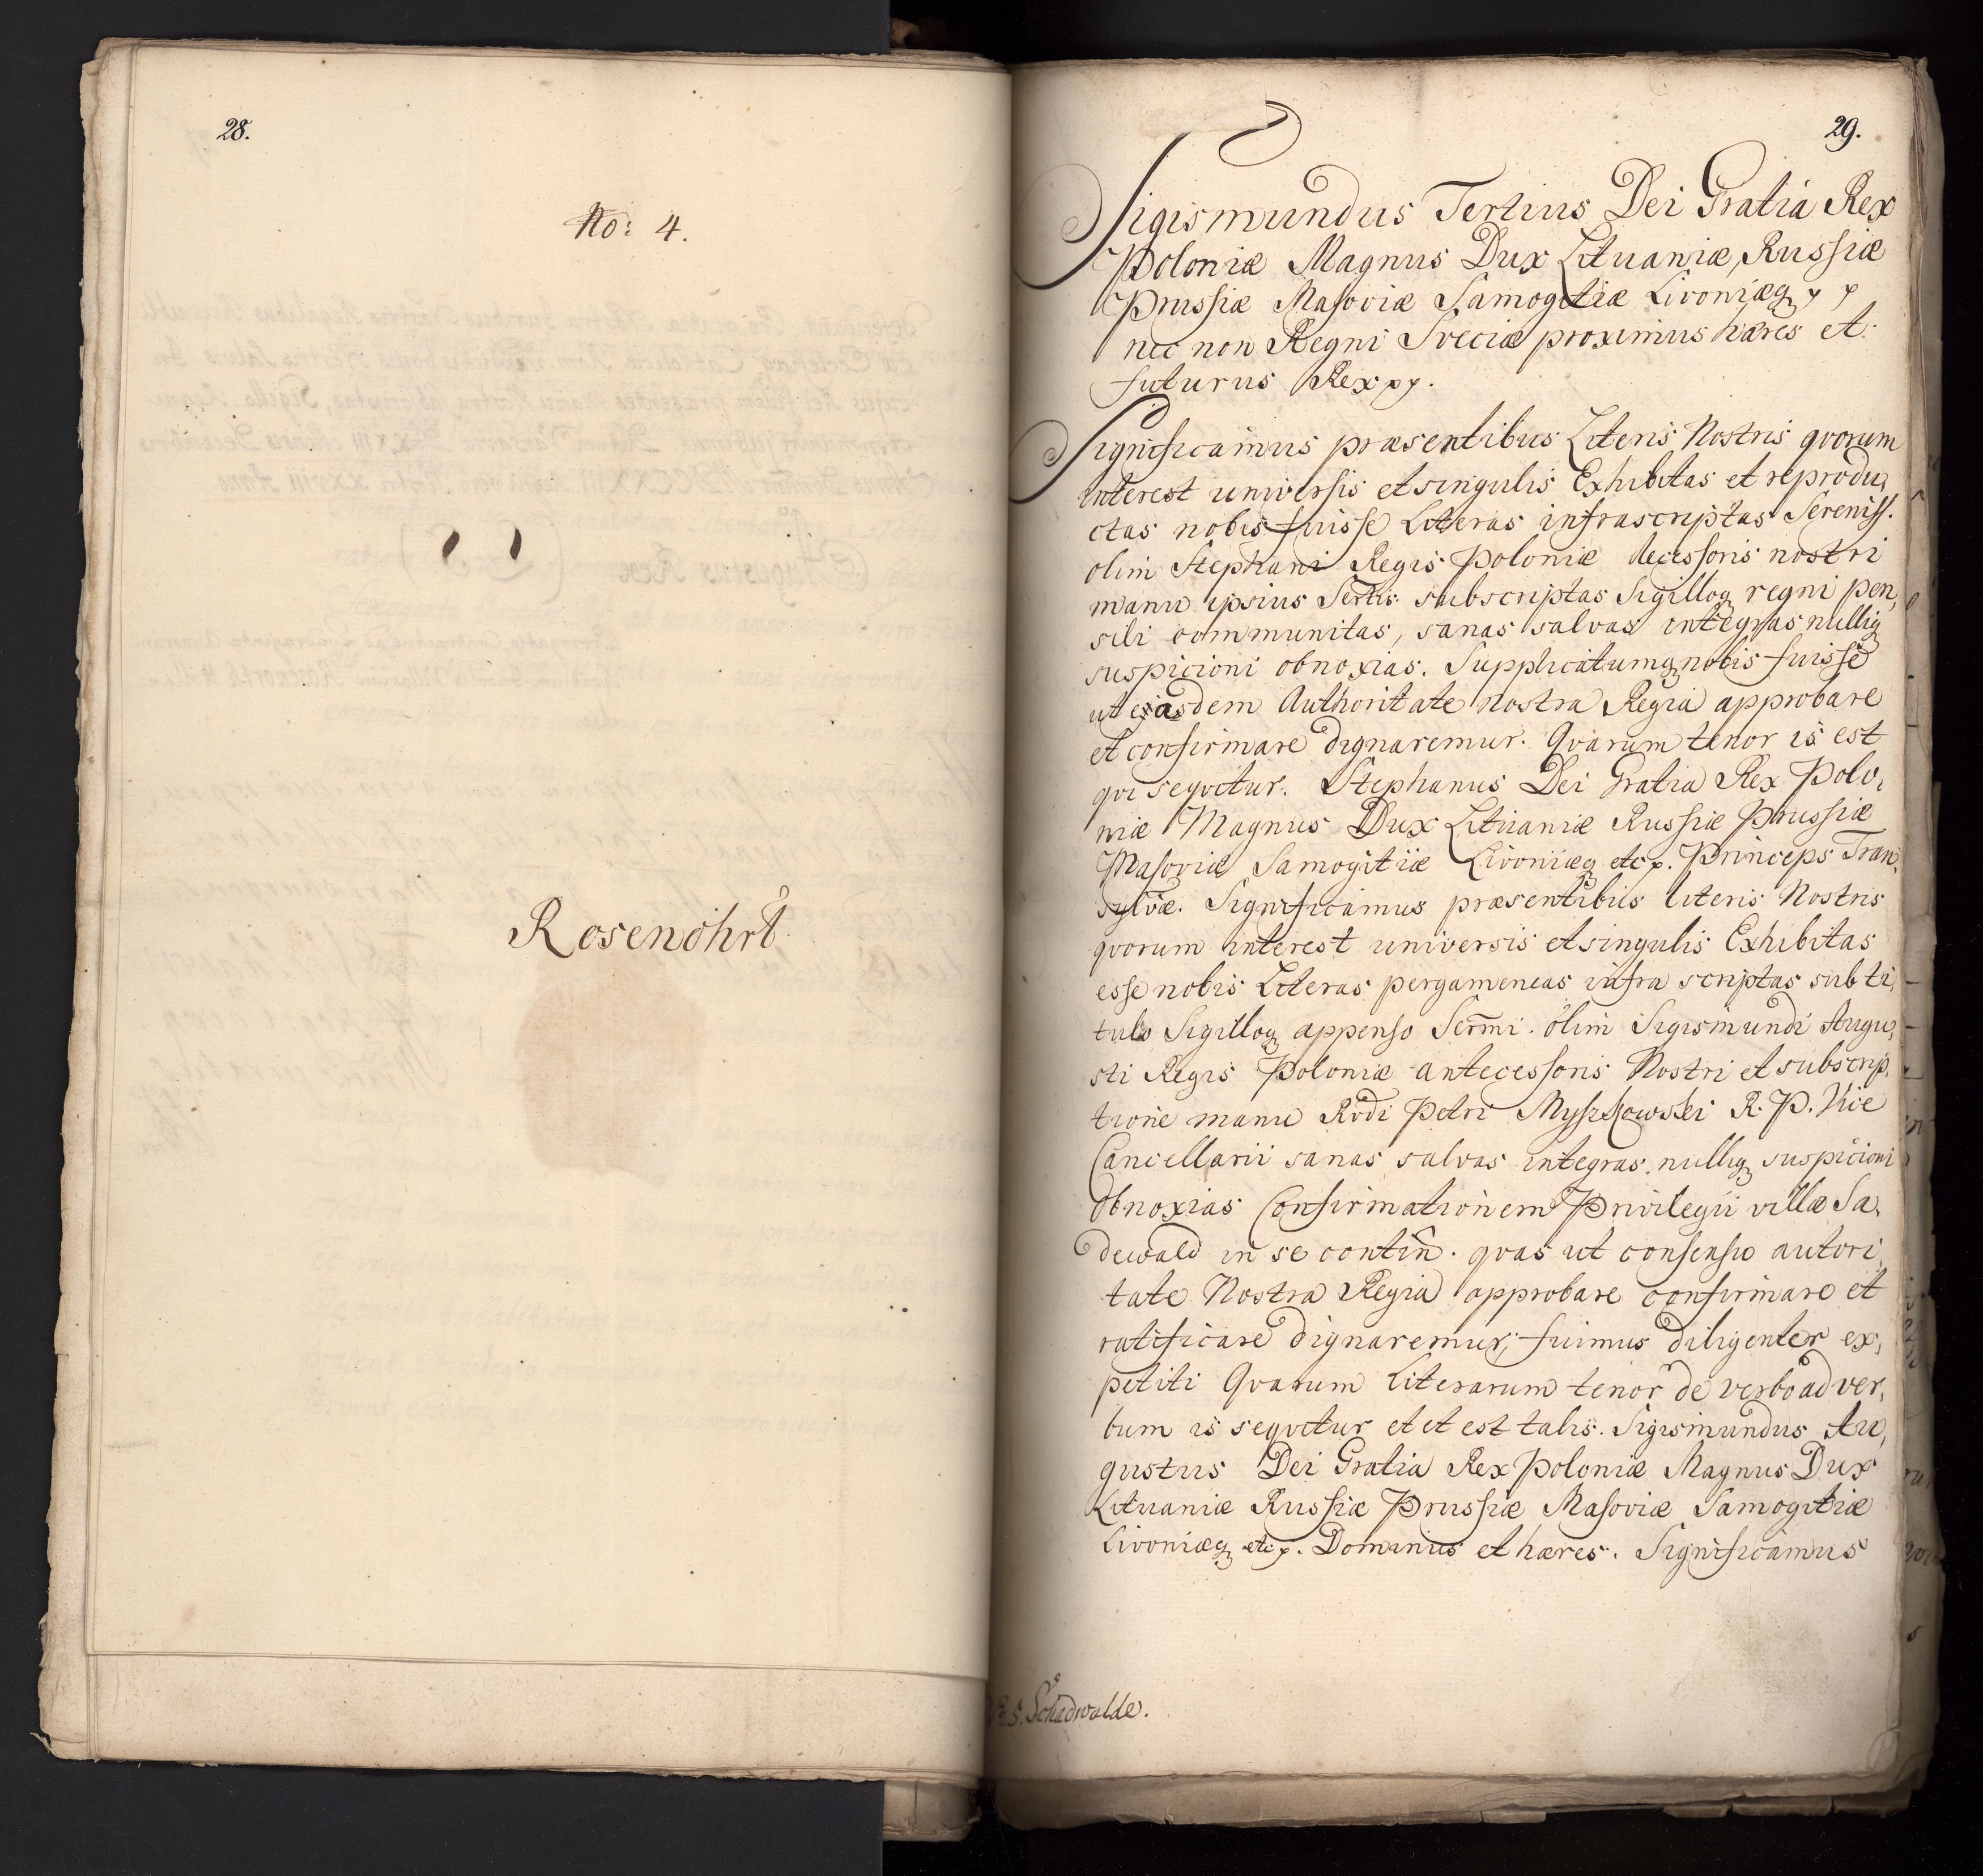 28.
No: 4.
Rosenöhrt
29.
Sigismundus Tertius Dei Gratia Rex
Poloniæ Magnus Dux Lituaniæ, Russiæ
Prussiæ Masoviæ Samogitiæ Livoniæq
nec non Regni Sveciæ proximus hæres et
futurus Rex
Significamus præsentibus Literis Nostris qvorum
interest universis et singulis Exhibitas et reprodu,
ctas nobis fuisse Literas infrascriptas Sereniss.
olim Stephani Regis Poloniæ decessoris nostri
manu ipsius Sertis subscriptas Sigilloq regni pen,
sili communitas, sanas salvas integras nulliq
suspicioni obnoxias. Supplicatumq nobis fuisse
ut easdem Authoritate nostra Regia approbare
et confirmare dignaremur. Qvarum tenor is est
qvi seqvitur. Stephanus Dei Gratia Rex Polo,
niæ Magnus Dux Lituaniæ Russiæ Prussiæ
Masoviæ Samogitiæ Livoniæq etc. Princeps Tran,
sylvæ. Significamus præsentibus literis Nostris
qvorum interest universis et singulis Exhibitas
esse nobis Literas pergameneas infra scriptas sub ti,
tulo Sigilloq appenso Sermi. olim Sigismundi Augu,
sti Regis Poloniæ antecessoris Nostri et subscrip,
tione manu Rvdi Petri Myszkowski R. P. Vice
Cancellarii sanas salvas integras nulliq suspicioni
obnoxias Confirmationem Privilegii villæ Sa,
dewald in se contin. qvas ut consensu autori,
tate Nostra Regia approbare confirmare et
ratificare dignaremur, fuimus diligenter ex,
petiti Qvarum Literarum tenor de verbo ad ver,
bum is seqvitur et et est talis. Sigismundus Au,
gustus Dei Gratia Rex Poloniæ Magnus Dux
Lituaniæ Russiæ Prussiæ Masoviæ Samogitiæ
Livoniæq etc. Dominus et hæres. Significamus
5. Schadwalde.